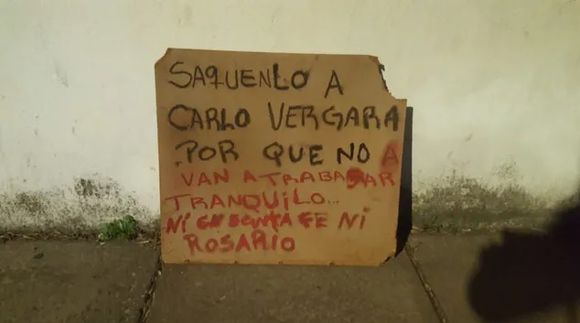 SAQUENLO A
CARLO VERGARA
POR QUE NO A
VAN A TRABAJAR
TRANQUILO...
NI EN SANTA FE NI
ROSARIO